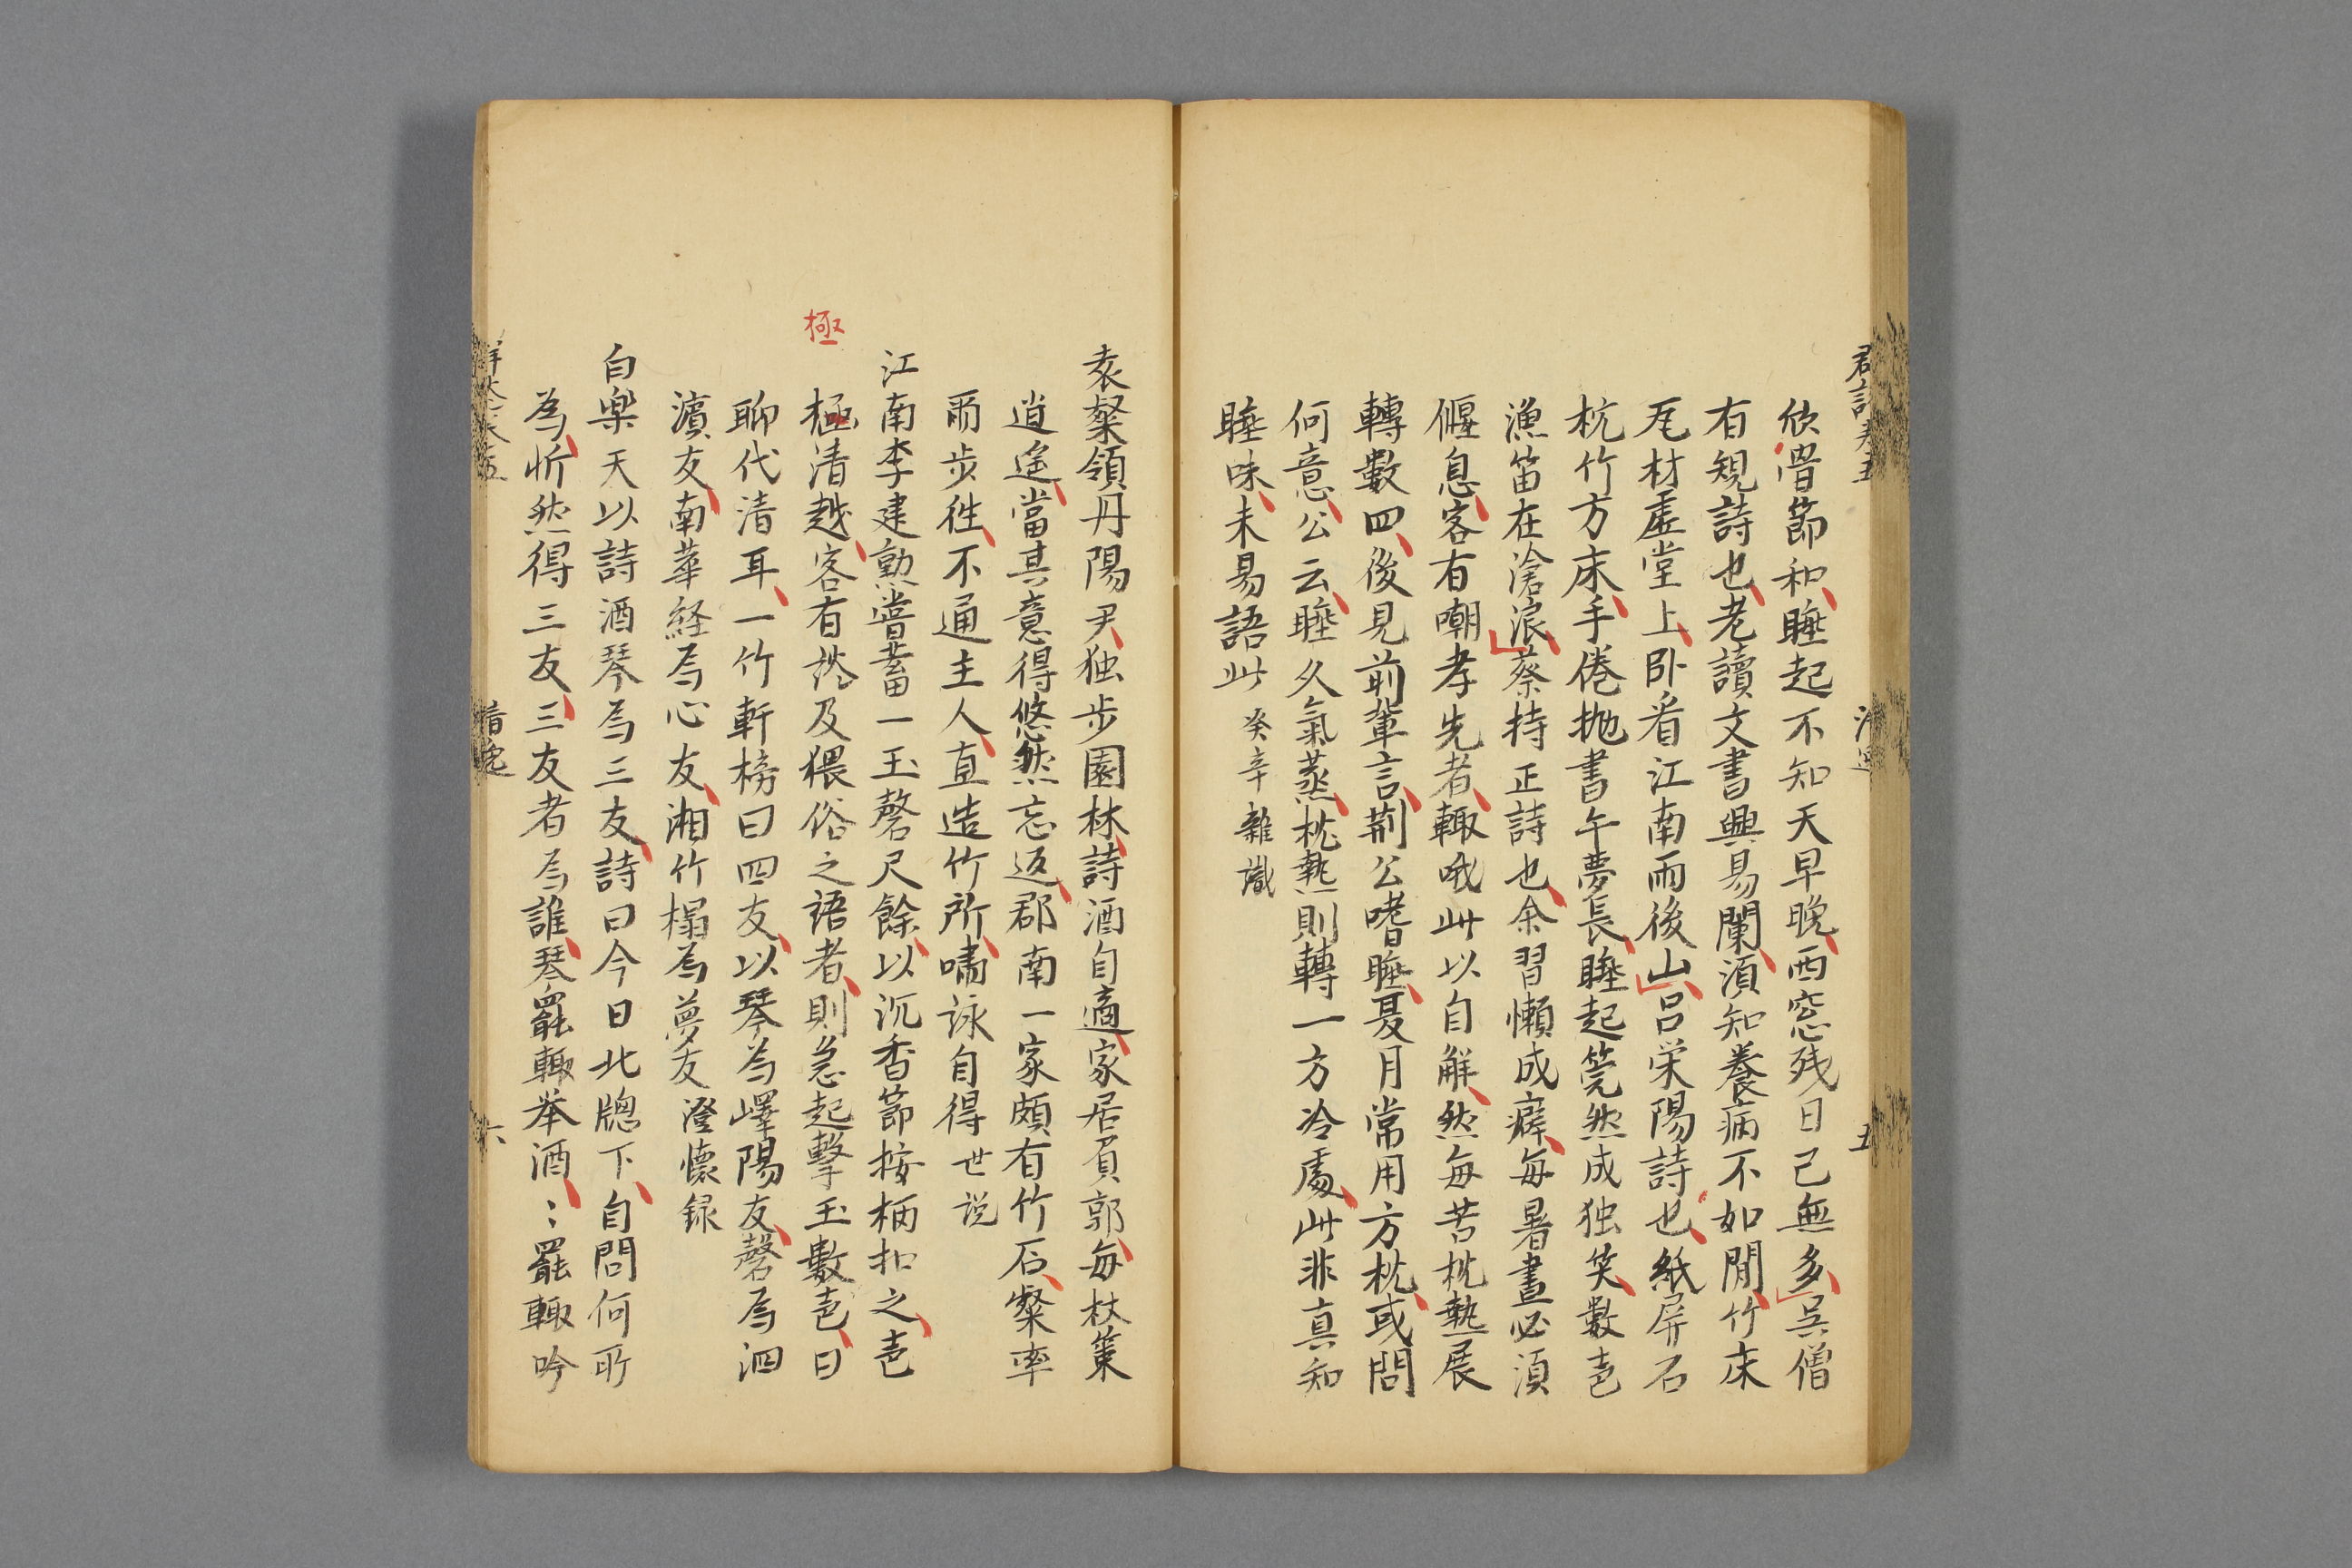 欣㬰節和睡起不知天早晚西窓残日已無多呉僧
有規詩也老讀文書興易闌湏知養病不如閒竹床
瓦材虚堂上卧看江南雨後山吕栄陽詩也紙屏石
枕竹方床手倦抛書午夢長睡起莞然成独笑數声
漁笛在滄浪蔡持正詩也余習懶成癖每暑晝必湏
偃息客有嘲孝先者輙哦此以自解然每苦枕熱展
轉數四後見前輩言荆公嗜睡夏月常用方枕或問
何意公云睡久氣蒸枕熱則轉一方冷處此非真知
睡味未易語此 癸辛雜識
袁粲領丹陽尹独步園林詩酒自適家居負郭每杖策
逍遥當其意得悠然忘返郡南一家頗有竹石粲率
爾步徃不通主人直造竹所嘯詠自得 世説
極
江南李建勲嘗蓄一玉磬尺餘以沉香節按柄扣之声
極清越客有談及猥俗之語者則急起擊玉數声曰
聊代清耳一竹軒榜曰四友以琴為嶧陽友磬爲泗
濵友南華経爲心友湘竹榻爲夢友 澄懐録
白楽天以詩酒琴爲三友詩曰今日北牕下自問何所
為忻然得三友三友者爲誰琴罷輙举酒〻罷輙吟
六